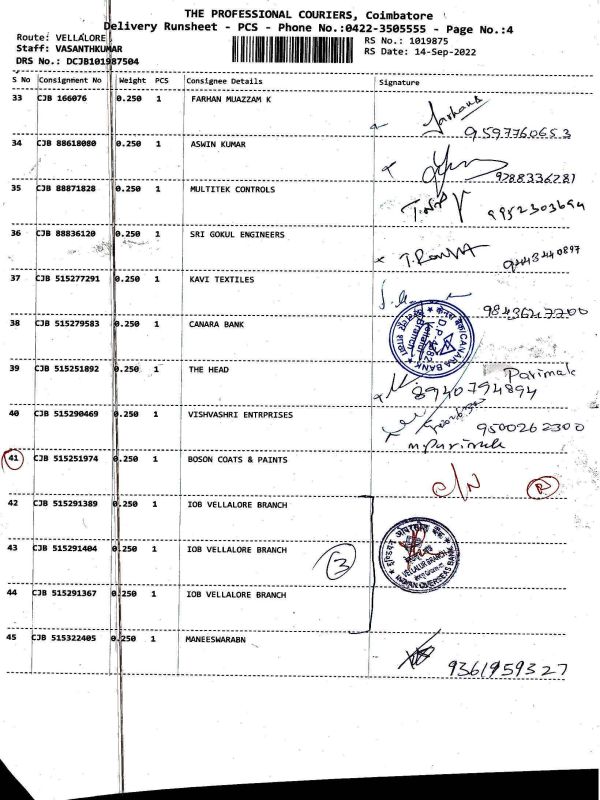 THE PROFESSIONAL COURIERS, Coimbatore
Delivery Runsheet - PCS - Phone No.:0422-3505555 - Page No.:4
Route: VELLALORE
RS No.: 1019875
Staff: VASANTHKUMAR
RS Date: 14-Sep-2022
DRS No.: DCJB101987504
S No Consignment No Weight PCS Consignee Details Signature
33 CJB 166076 0.250 1 FARHAN MUAZZAM K
Farhan
9597760653
34 CJB 88618080 0.250 1 ASWIN KUMAR
9788336781
35 CJB 88871828 0.250 1 MULTITEK CONTROLS
9952303694
36 CJB 88836120 0.250 1 SRI GOKUL ENGINEERS
9443440897
37 CJB 515277291 0.250 1 KAVI TEXTILES
9843647700
38 CJB 515279583 0.250 1 CANARA BANK
CANARA BANK
39 CJB 515251892 0.250 1 THE HEAD
Parimala
8940794894
40 CJB 515290469 0.250 1 VISHVASHRI ENTRPRISES
9500262300
41 CJB 515251974 0.250 1 BOSON COATS & PAINTS
C/N R
42 CJB 515291389 0.250 1 IOB VELLALORE BRANCH
43 CJB 515291404 0.250 1 IOB VELLALORE BRANCH
3
VELLALUR BRANCH
INDIAN OVERSEAS BANK
44 CJB 515291367 0.250 1 IOB VELLALORE BRANCH
45 CJB 515322405 0.250 1 MANEESWARABN
9361959327